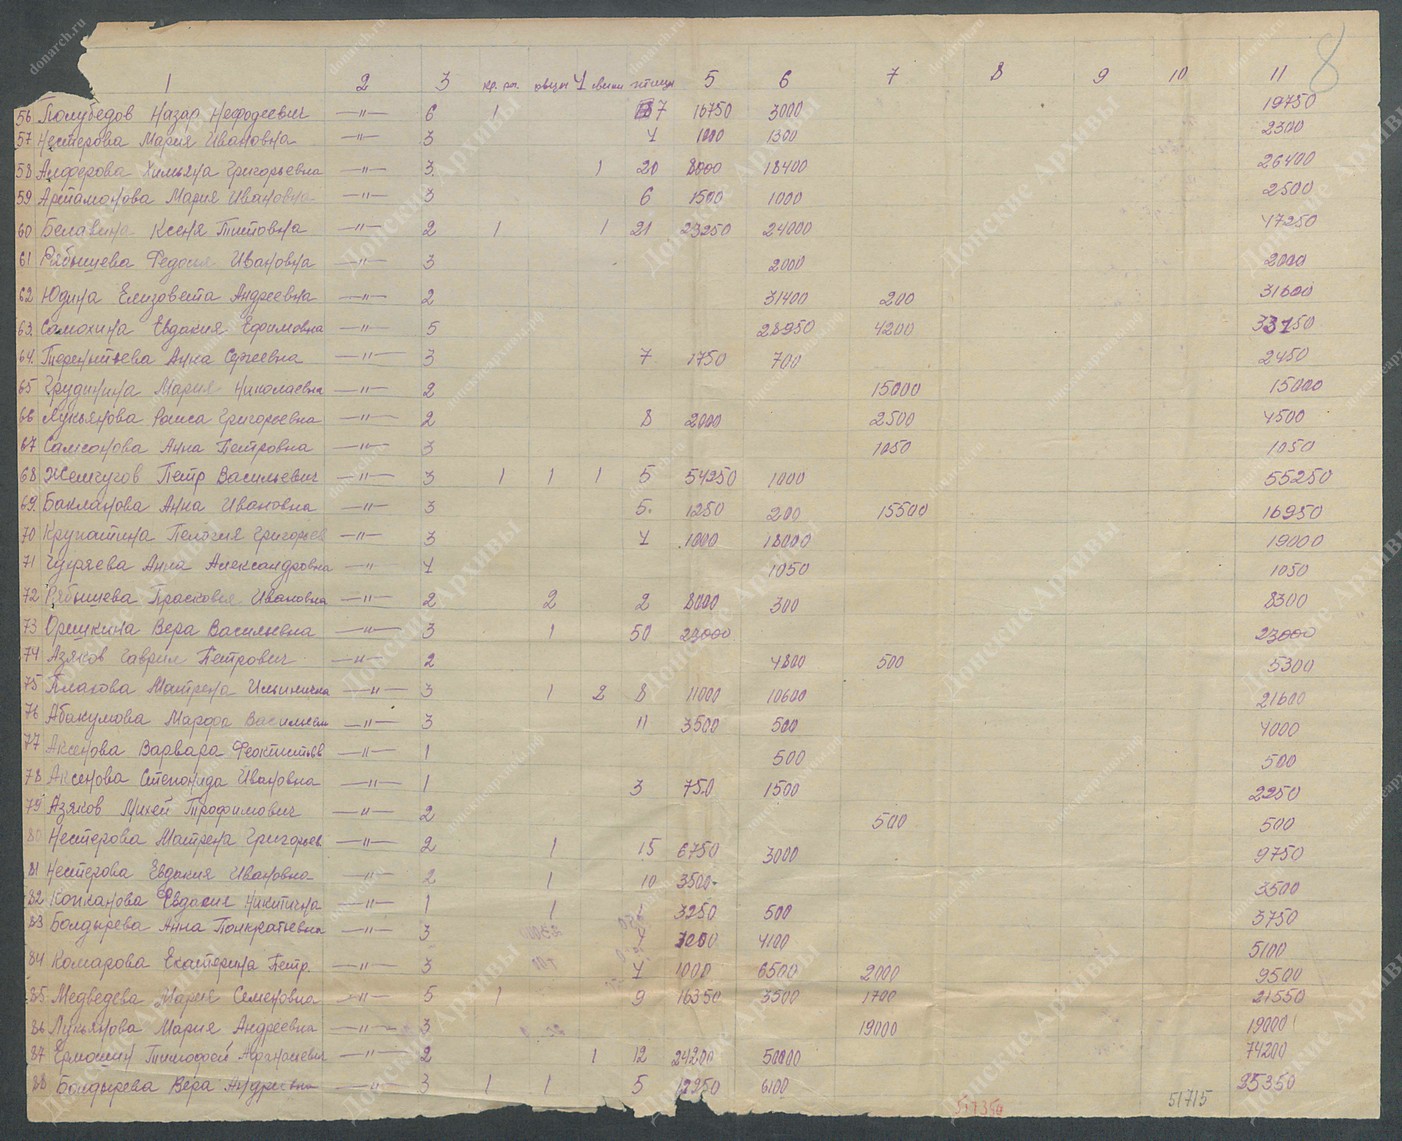 8
1 2 3 кр. ро. овцы 4 свиньи птицы 5 6 7 8 9 10 11
56 Голубедов Назар Нефодеевич —"— 6 1 7 16750 3000 19750
57 Нестерова Мария Ивановна —"— 3 4 1000 1300 2300
58 Алферова Григорьевна —"— 3 1 20 8000 18400 26400
59 Артамонова Мария Ивановна —"— 3 6 1500 1000 2500
60 Белавина Ксеня Титовна —"— 2 1 1 21 23250 24000 47250
61 Рябышева Федосия Ивановна —"— 3 2000 2000
62 Юдина Елизовета Андреевна —"— 2 31400 200 31600
63. Самохина Евдакия Ефимовна —"— 5 28950 4200 33150
64. Терентьева Анна Сергеевна —"— 3 7 1750 700 2450
65 Грудинина Мария Николаевна —"— 2 15000 15000
66 Лукьянова Раиса Григорьевна —"— 2 8 2000 2500 4500
67 Самсонова Анна Петровна —"— 3 1050 1050
68 Жемчугов Петр Васильевич —"— 3 1 1 1 5 54250 1000 55250
69. Бакланова Анна Ивановна —"— 3 5. 1250 200 15500 16950
70 Крупатина Пелагия Григорьев —"— 3 4 1000 18000 19000
71 Чуряева Анна Александровна —"— 4 1050 1050
72 Рябышева Прасковья Ивановна —"— 2 2 2 8000 300 8300
73 Орешкина Вера Васильевна —"— 3 1 50 23000 23000
74 Азяков Гаврил Петрович —"— 2 4800 500 5300
75 Платова Матрена Ильинична —"— 3 1 2 8 11000 10600 21600
76 Абакумова Марфа Васильевн —"— 3 11 3500 500 4000
77 Аксенова Варвара Феоктистов —"— 1 500 500
78 Аксенова Степонида Ивановна —"— 1 3 750 1500 2250
79 Азяков Михей Трофимович —"— 2 500 500
80 Нестерова Матрена Григорьев —"— 2 1 15 6750 3000 9750
81 Нестерова Евдакия Ивановна —"— 2 1 10 3500- 3500
82 Копканова Евдокия Никитична —"— 1 1 1 3250 500 3750
83 Болдырева Анна Понкратьевна —"— 3 4100 5100
84 Комарова Екатерина Петр. —"— 3 4 1000 6500 2000 9500
85. Медведева Мария Семеновна —"— 5 1 9 16350 3500 1700 21550
86 Лукьянова Мария Андреевна —"— 3 19000 19000
87 Ермошин Тимофей Афанасьевич —"— 2 1 12 24200 50000 74200
88 Болдырева Вера Андреевна —"— 3 1 1 5 6100
517350 51715